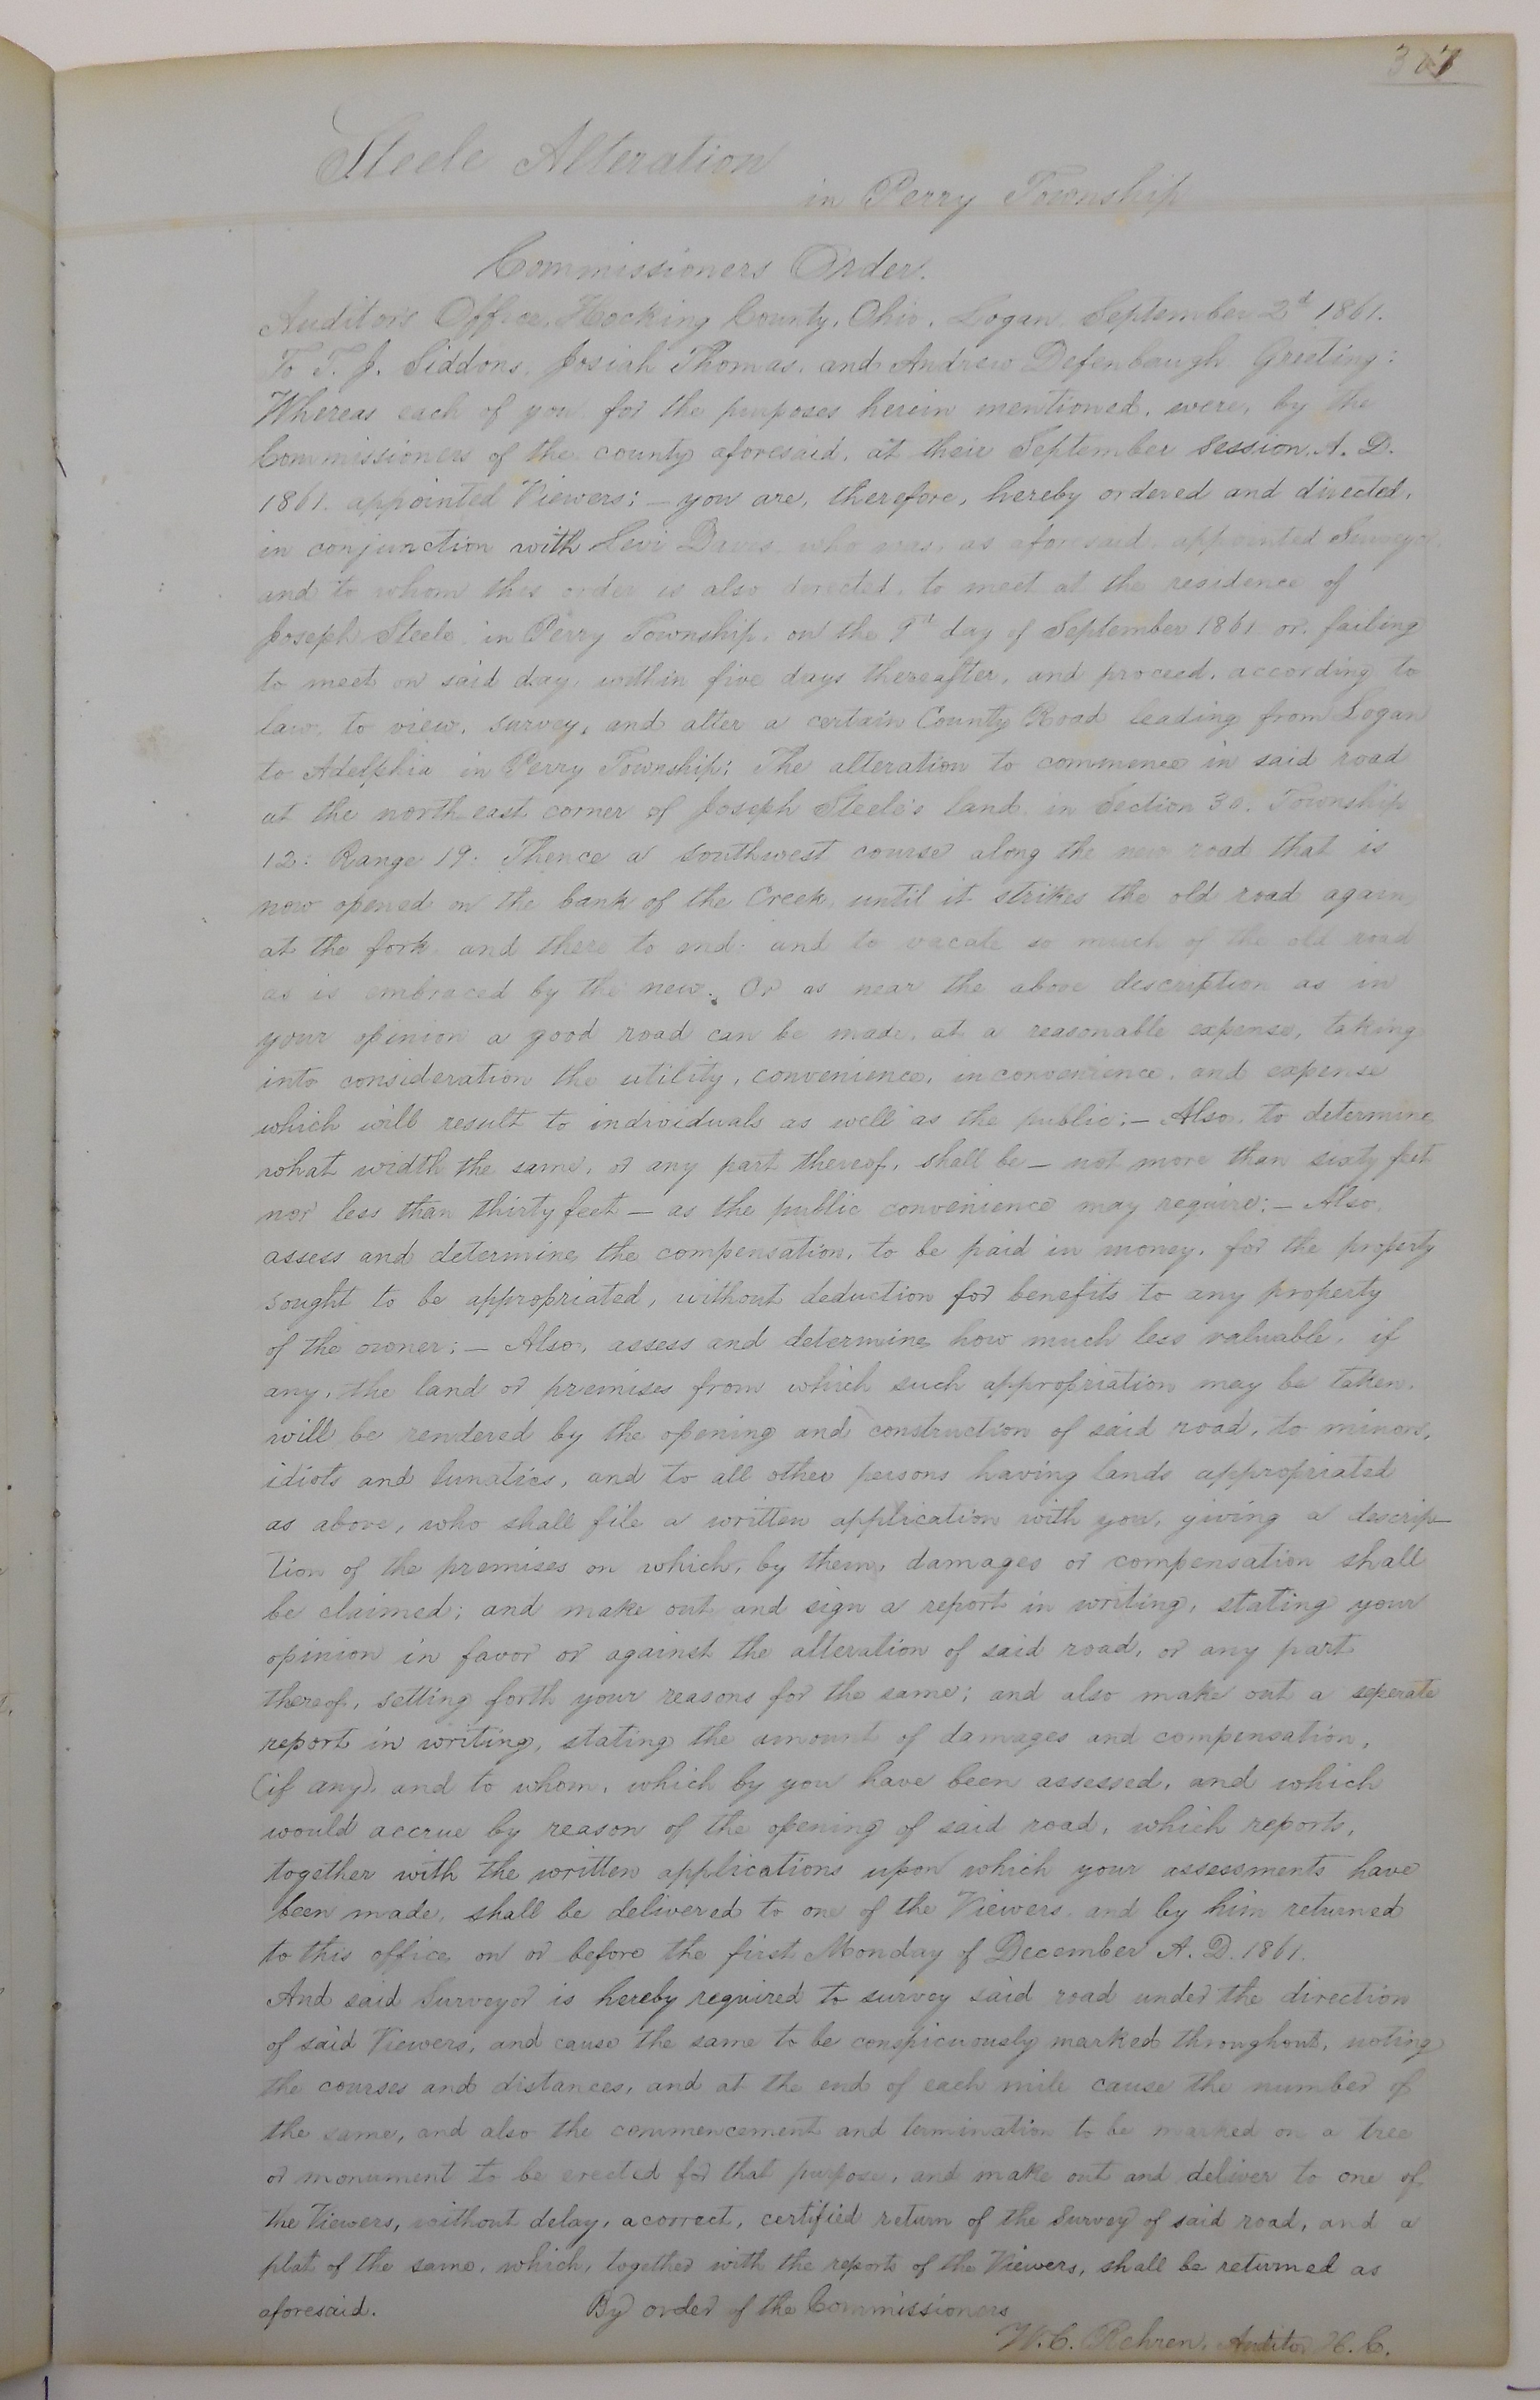 307
Steele Alteration
in Perry Township
Commissioners Order.
Auditor's Office, Hocking County, Ohio, Logan, September 2d 1861.
To T. J. Siddons, Josiah Thomas, and Andrew Defenbaugh Greeting:
Whereas each of you for the purposes herein mentioned, were, by the
Commissioners of the county aforesaid, at their September Session, A. D.
1861. appointed Viewers; — you are, therefore, hereby ordered and directed,
in conjunction with Levi Davis, who was, as aforesaid, appointed Surveyor
and to whom this order is also directed, to meet at the residence of
Joseph Steele in Perry Township, on the 9th day of September 1861 or, failing
to meet on said day, within five days thereafter, and proceed, according to
law, to view, survey, and alter a certain County Road leading from Logan
to Adelphia in Perry Township: The alteration to commence in said road
at the north east corner of Joseph Steele's land, in Section 30. Township
12: Range 19: Thence a southwest course along the new road that is
now opened on the bank of the Creek, until it strikes the old road again
at the fork and there to end: and to vacate so much of the old road
as is embraced by the new. Or as near the above description as in
your opinion a good road can be made, at a reasonable expense, taking
into consideration the utility, convenience, inconvenience, and expense
which will result to individuals as well as the public; — Also, to determine
what width the same, or any part thereof, shall be — not more than sixty feet
nor less than thirty feet — as the public convenience may require; — Also,
assess and determine the compensation, to be paid in money, for the property
sought to be appropriated, without deduction for benefits to any property
of the owner; — Also, assess and determine how much less valuable, if
any, the land or premises from which such appropriation may be taken,
will be rendered by the opening and construction of said road, to minors,
idiots and lunatics, and to all other persons having lands appropriated
as above, who shall file a written application with you, giving a descrip-
tion of the premises on which, by them, damages or compensation shall
be claimed; and make out and sign a report in writing, stating your
opinion in favor or against the alteration of said road, or any part
thereof, setting forth your reasons for the same; and also make out a seperate
report in writing, stating the amount of damages and compensation,
(if any), and to whom, which by you have been assessed, and which
would accrue by reason of the opening of said road, which reports,
together with the written applications upon which your assessments have
been made, shall be delivered to one of the Viewers, and by him returned
to this office on or before the first Monday of December A. D. 1861.
And said Surveyor is hereby required to survey said road under the direction
of said Viewers, and cause the same to be conspicuously marked throughout, noting
the courses and distances, and at the end of each mile cause the number of
the same, and also the commencement and termination to be marked on a tree
or monument to be erected for that purpose, and make out and deliver to one of
the Viewers, without delay, a correct, certified return of the Survey of said road, and a
plat of the same, which, together with the reports of the Viewers, shall be returned as
aforesaid. By order of the Commissioners
W. C. Rehren, Auditor H. C.